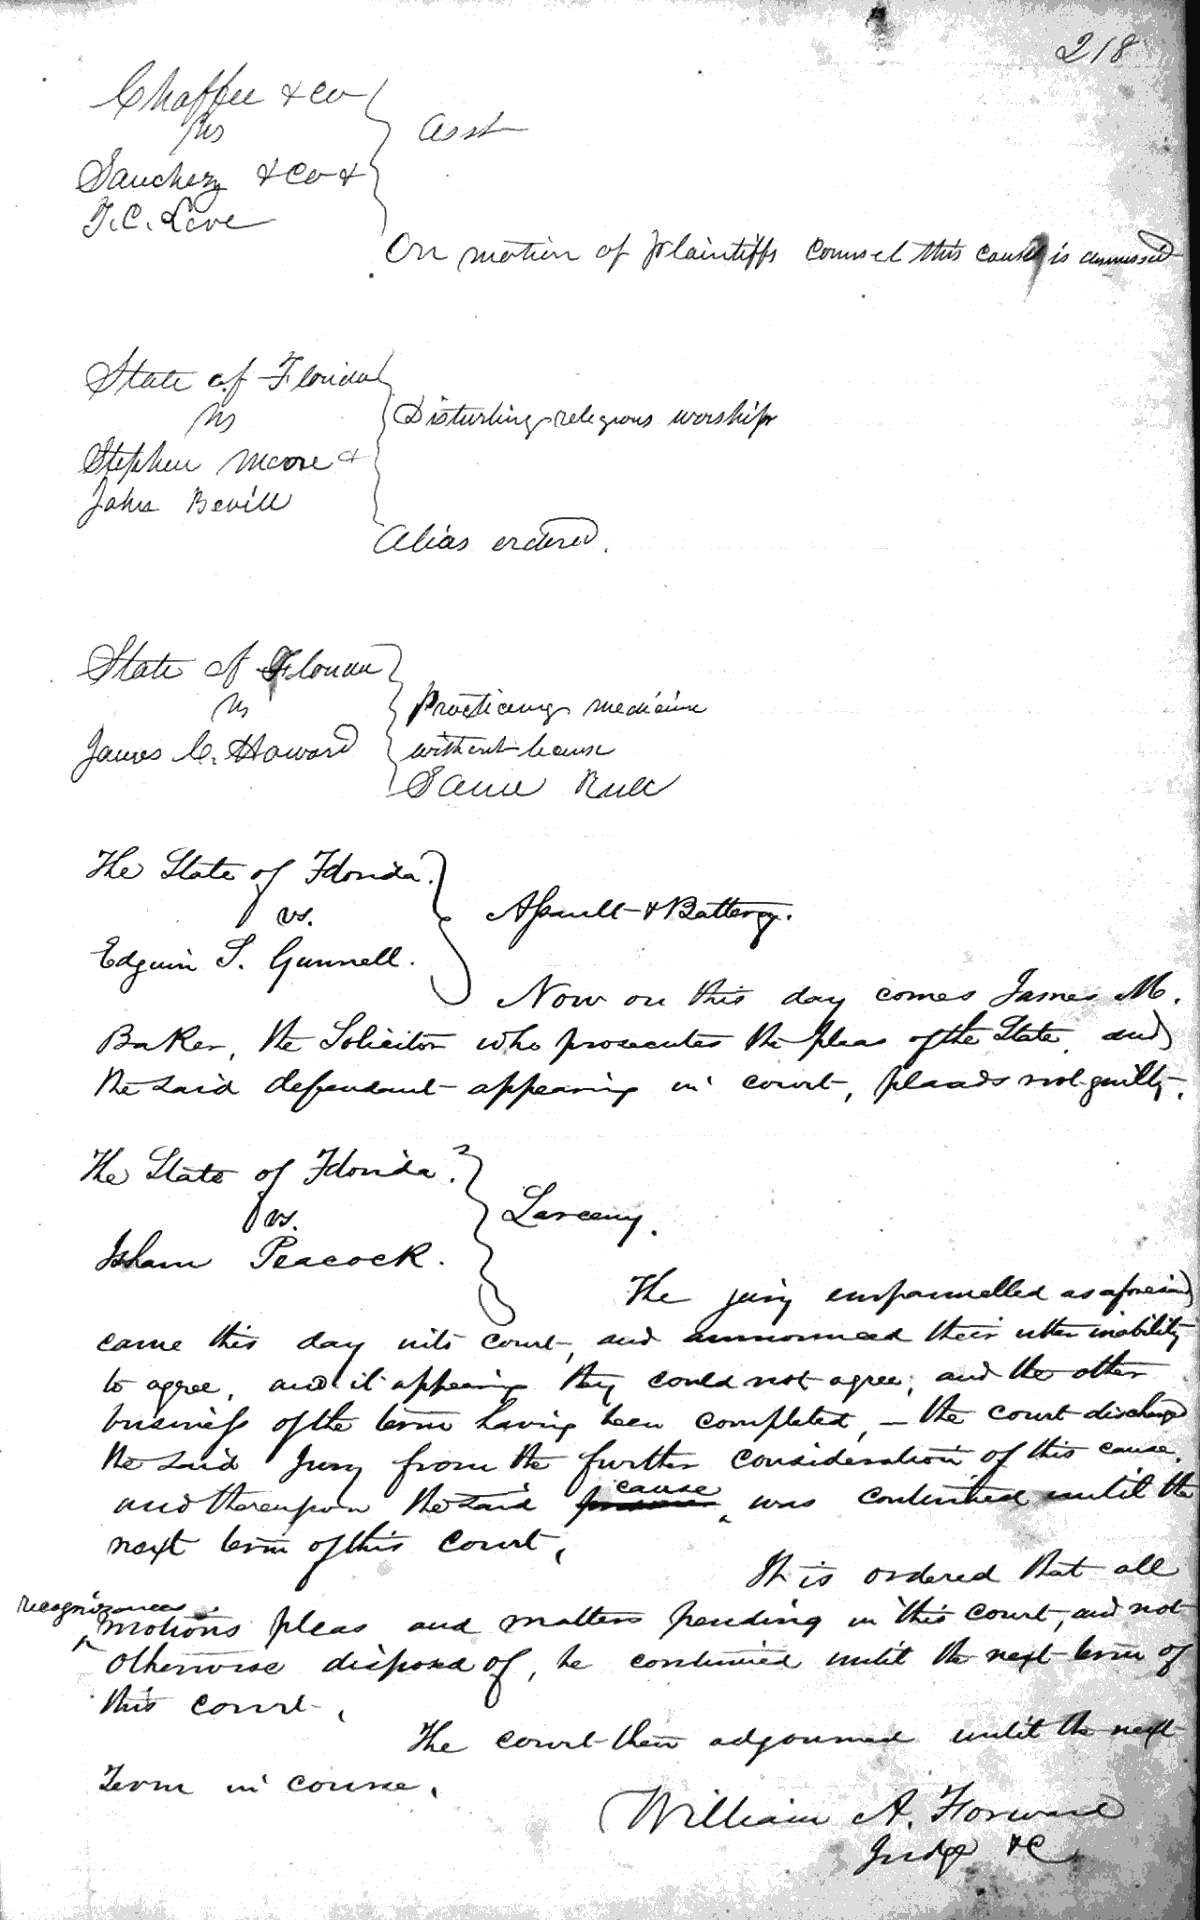 218
Chaffee & Co
vs
Sanchez & Co &
T. C. Love
Asst
On motion of plaintiffs counsel this cause is dismissed
State of Florida
vs
Stephen Moore &
John Bevill
Disturbing religious worship
Alias ordered.
State of Florida
vs
James C. Howard
Practicing medicine
without license
Same Rule
The State of Florida.
vs.
Edguin S. Gunnell.
Assault & Battery.
Now on this day comes James M.
Baker, the Solicitor who prosecutes the pleas of the State, and
the said defendant appearing in court, pleads not guilty.
The State of Florida.
vs.
Isham Peacock.
Larceny.
The jury empannelled as aforesaid
came this day into court, and announced their utter inability
to agree, and it appearing they could not agree, and the other
business of the term having been completed, – the court discharged
the said Jury from the further consideration of this cause,
and thereupon the said cause was continued until the
next term of this court,
It is ordered that all
recognizances
motions pleas and matters pending in this court, and not
otherwise disposed of, be continued until the next term of
this court.
The court then adjourned until the next
Term in course.
William A. Forward
Judge &C